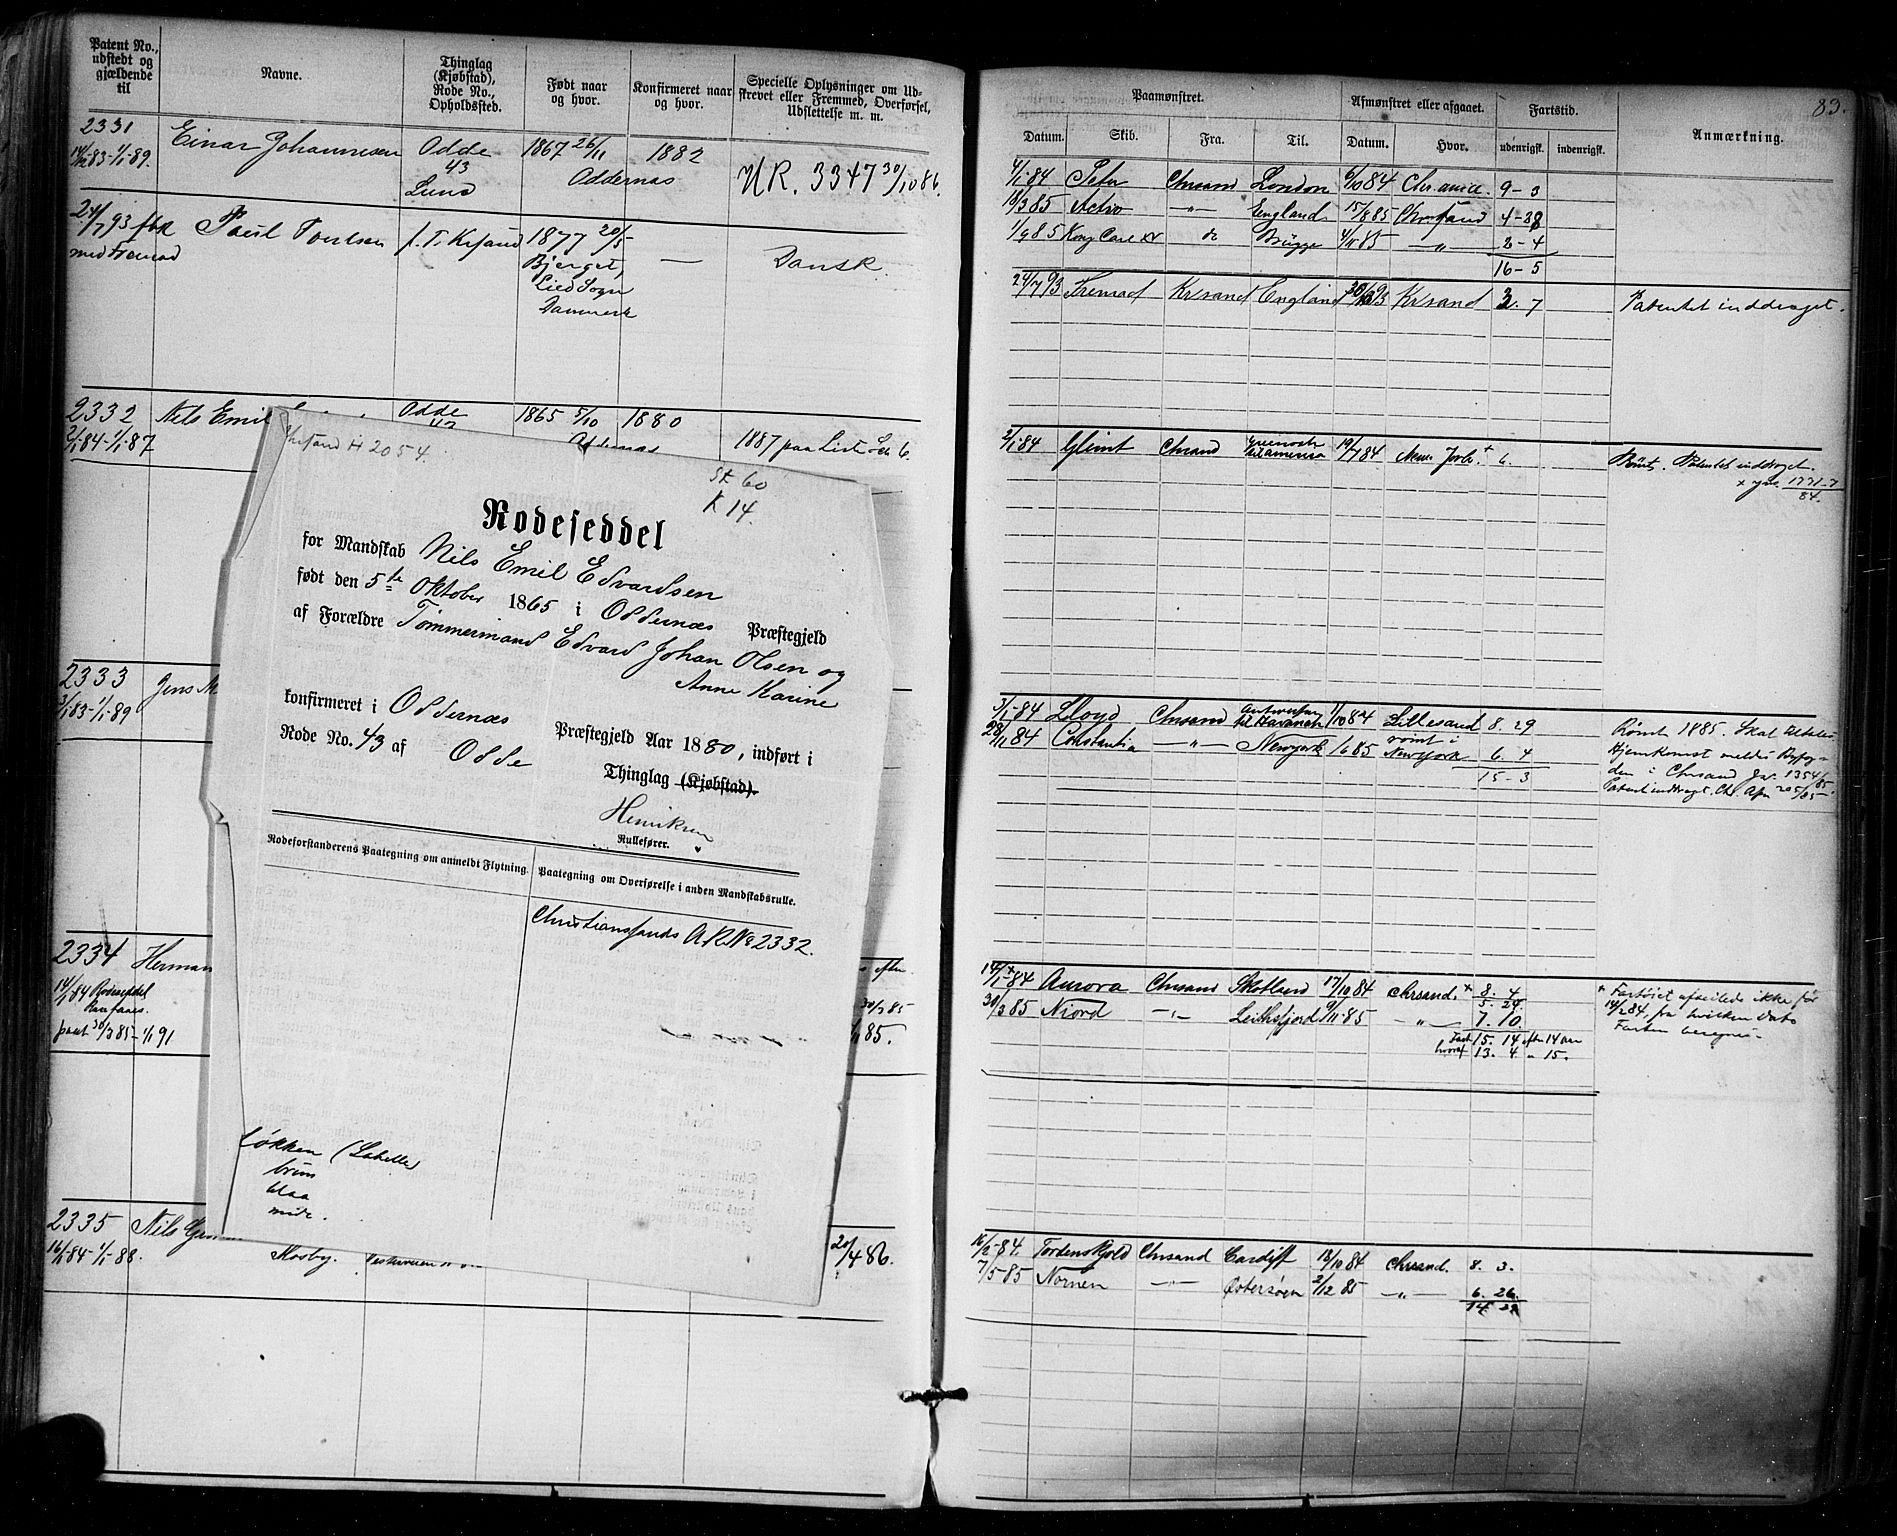 Patent No., udstedt og gjældende til
Navne.
Thinglag (Kjøbstad), Rode No., Opholdssted.
Født naar og hvor.
Konfirmeret naar og hvor.
Specielle Oplysninger om Udskrevet eller Fremmed, Overførsel, Udslettelse m. m.
2331
14/12 83-1/1-89.
Einar Johannesen
Odde
43
Lund
1867 26/11
1882
Oddernæs
N.R. 3347 30/10 86.
24/7 93 fbk
med Fremad
Paul Poulsen
f. T. Krsand
1877 20/5
Bjerget,
Lied Sogn
Danmark
—
Dansk.
2332
2/1-84-1/1-87
Nils Emil
Odde
1865 5/10
1880
Oddernæs
1887 paa Liste
2333
3/1 83-1/1-89
Jens
2334
14/1 84 Rodeseddel
paat 30/3 85-1/1 91
Herman
30/3 85
85.
2335
16/1-84-1/1-88.
Nils
Mosby.
20/4 86.
Chrsand H 2054.
St 60
K 14.
Rodeseddel
for Mandskab Nils Emil Edvardsen
født den 5te Oktober 1865 i Oddernæs Præstegjeld
af Forældre Tømmermand Edvard Johan Olsen og
Anne Karine
konfirmeret i Oddernæs Præstegjeld Aar 1880, indført i
Rode No. 43 af Odde Thinglag (Kjøbstad).
Henriksen
Rullefører.
Rodeforstanderens Paategning om anmeldt Flytning.
Paategning om Overførelse i anden Mandskabsrulle.
Christianssands A.R. No 2332.
Løkken (Labelle
brun
blaa
midt.
83.
Paamønstret.
Afmønstret eller afgaaet.
Fartstid.
Anmærkning.
Datum.
Skib.
Fra.
Til.
Datum.
Hvor.
udenrigsk.
indenrigsk.
4/1-84 Peter Chrsand London 6/10 84 Chr.ania. 9-3
18/3 85 Activ -"- England 15/8 85 Chrsand 4-28
1/9 85 Kong Carl XV do Brügge 4/11 85 -"- 2-4
16-5
24/7 93 Fremad Krsand England 30/10 93 Krsand 3. 7 Patentet inddraget.
2/1-84 Glimt Chrsand Greenock til Amerika 19/7 84 New York + 6. Rømt. Patentet inddraget.
3/1-84 Lloyd Chrsand Antwerpen til Havanah 1/10 84 Lillesand 8. 29 Rømt 1885. Skal ved
28/11 84 Constantia -"- Newyork 1/6 85 rømt i Newyork 6. 4 Hjemkomst meldes
15-3
den i Chrsand Jr. 1354/85.
Patent inddragt. Chr. Afn 20 5/85
14/1-84 Aurora Chrsand Skotland 17/10 84 Chrsand. + 8. 4
5. 24.
30/3 85 Njord -"- Leithsfjord 9/11 85 -"- 7. 10.
15. 14 efter 14 Aar
hvoraf 13. 4 " 15.
+ Fartøiet afseilede ikke før
14/2 84, fra hvilken Dato
Farten beregnes.
16/2-84. Tordenskjold Chrsand Cardiff 18/10 84 Chrsand. 8. 3.
7/5 85 Nornen -"- Østersøen 2/12 85 -"- 6. 26.
14. 29